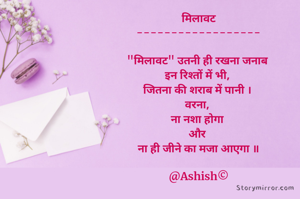 मिलावट
------------------
"मिलावट" उतनी ही रखना जनाब
इन रिश्तों में भी,
जितना की शराब में पानी ।
वरना,
ना नशा होगा
और
ना ही जीने का मजा आएगा ॥
@Ashish©
Storymirror.com